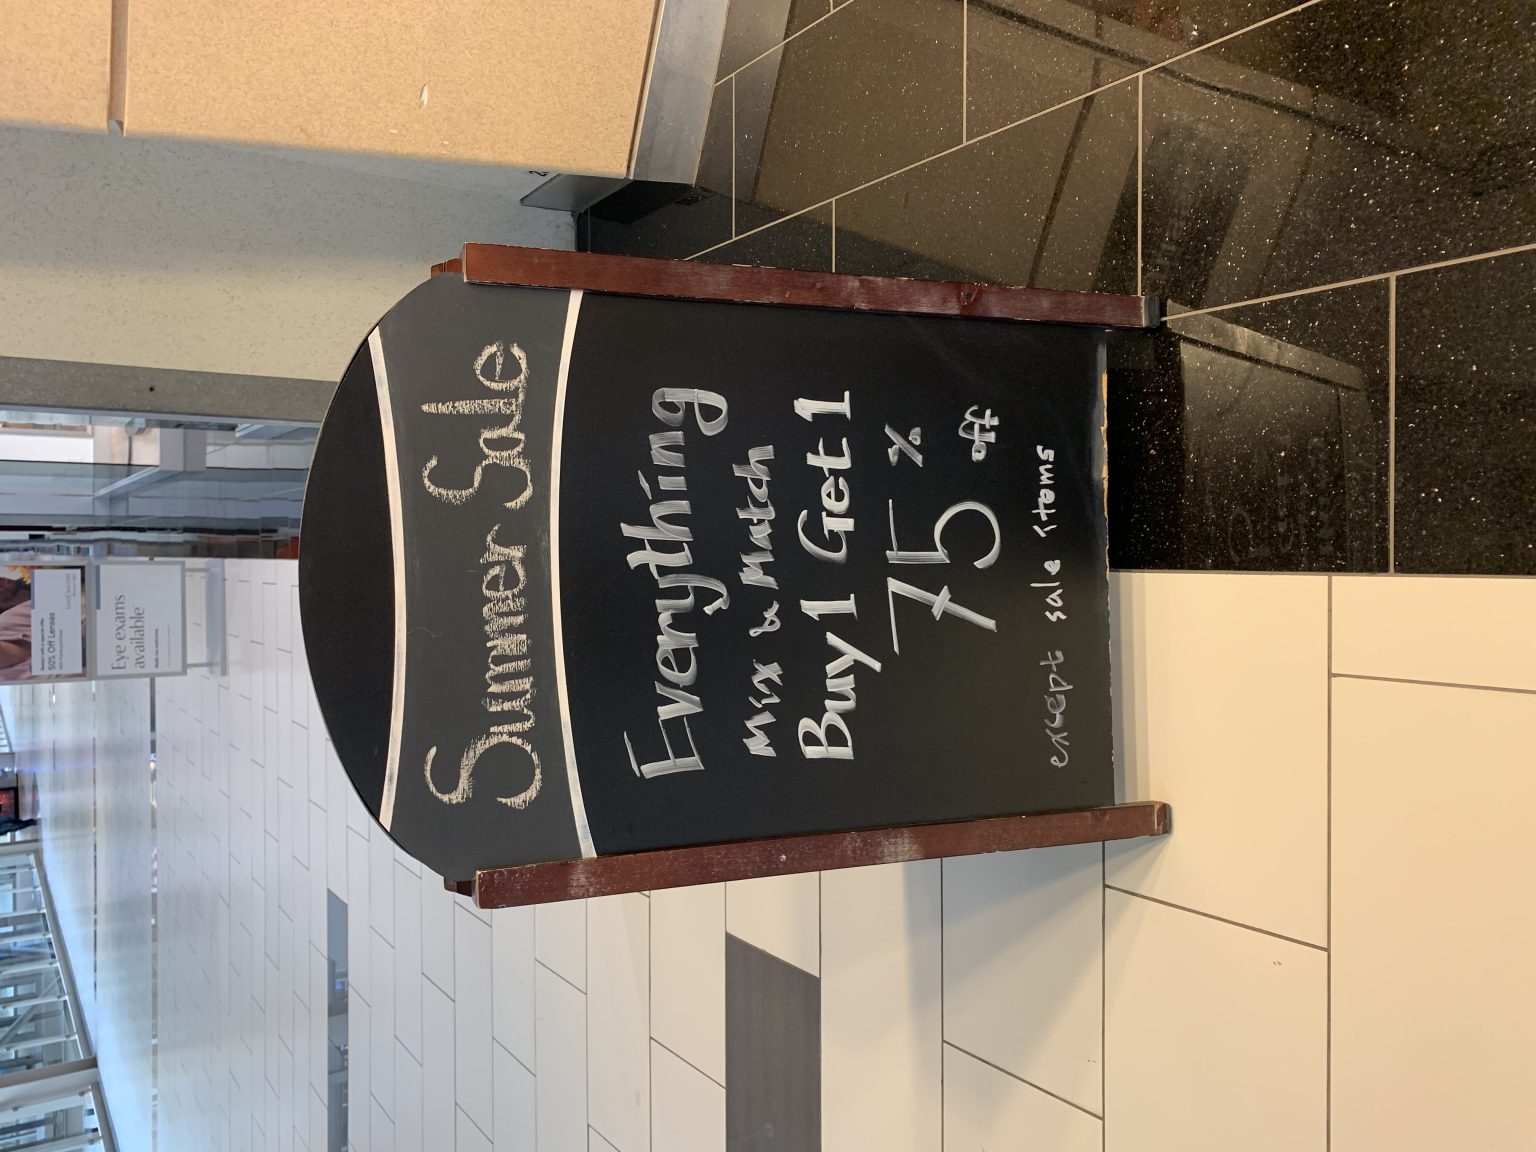 Summer Sale
Everything
Mix & Match
Buy 1 Get 1
75 % off
except sale items
50% Off Lenses
Eye exams
available